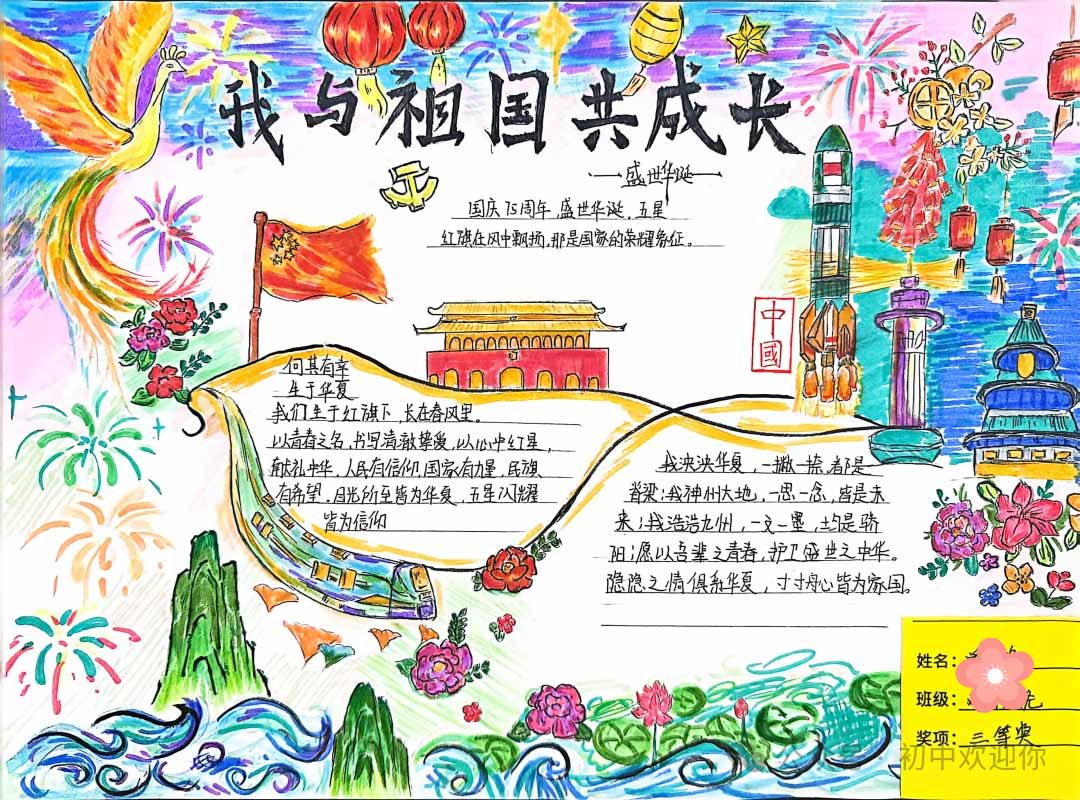 我与祖国共成长
盛世华诞
国庆75周年,盛世华诞,五星
红旗在风中飘扬,那是国家的荣耀象征。
中國
何其有幸
生于华夏
我们生于红旗下 长在春风里。
以青春之名,书写清澈挚爱,以心中红星,
献礼中华,人民有信仰,国家有力量,民族
有希望,目光所至皆为华夏,五星闪耀
皆为信仰
我泱泱华夏,一撇一捺,都是
脊梁;我神州大地,一思一念,皆是未
来;我浩浩九州,一文一墨,均是骄
阳;愿以吾辈之青春,护卫盛世之中华。
隐隐之情俱系华夏,寸寸丹心皆为家国。
姓名:
班级:
奖项:三等奖
初中欢迎你